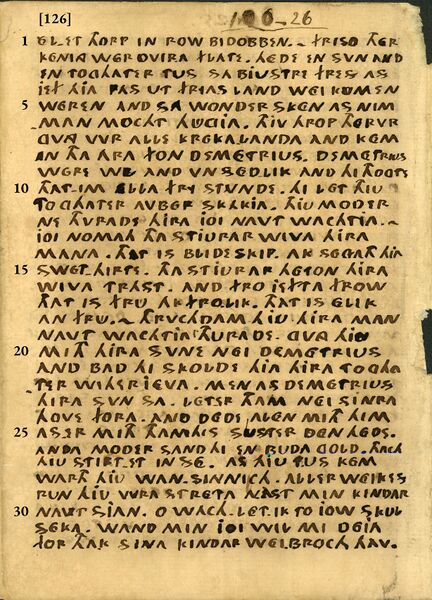 [126]
126-26
1 BLET THORP IN ROW BIDOBBEN. ~ FRISO THER
KENIA WER OVIRA FLATE. HEDE EN SVN AND
EN TOGHATER TUS. SA BJUSTRE FRES AS
JEF HJA PAS UT FRJAS LAND WEI KUMEN
5 WEREN AND SA WONDERSKEN AS NIM
MAN MOCHT HUGJA. THJU HROP THERVR
GVG VVR ALLE KREKALANDA AND KEM
AN THA ARA FON DEMETRIUS. DEMETRIUS
WERE WL AND VN SEDLIK AND HI THOGTE
10 THAT-IM ELLA FRY STVNDE. HI LET THJU
TOGHATER AVBER SKAKJA. THJU MODER
NE THVRADE HIRA JOI NAVT WACHTJA. ~
JOI NOMATH THA STJURAR WIVA HIRA
MANA. THAT IS BLIDESKIP. AK SEGSATH HJA
15 SWETHIRTE. THA STJURAR HETON HIRA
WIVA TRAST. AND FRO JEFTA FROW
THAT IS FRU AK FROLIK. THAT IS GLIK
AN FRU. ~ THRVCHDAM HJU HIRA MAN
NAVT WACHTJA THVRADE. GVG HJU
20 MITH HIRA SVNE NEI DEMETRIUS
AND BAD HI SKOLDE HJA HIRA TOGHA
TER WITHER JEVA. MEN AS DEMETRIUS
HIRA SVN SA. LETER THAM NEI SINRA
HOVE FORA. AND DEDE ALEN MITH HIM
25 AS-ER MITH THAM HIS SUSTER DEN HEDE.
ANDA MODER SAND HI EN BUDA GOLD. THACH
HJU STIRT-ET IN SE. AS HJU TUS KEM
WARTH HJU WAN-SINNICH. ALLERWEIKES
RUN HJU VVRA STRETA NAST MIN KINDAR
30 NAVT SJAN. O WACH. LET-IK TO JOW SKUL
SEKA. WAND MIN JOI WIL MI DEJA
FOR THAK SINA KINDAR WEIBROCH HAV.